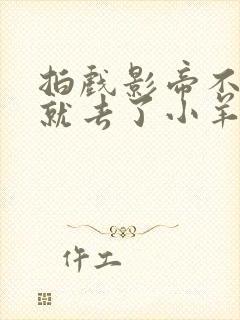 拍戏影帝不
就去了小羊
仵工